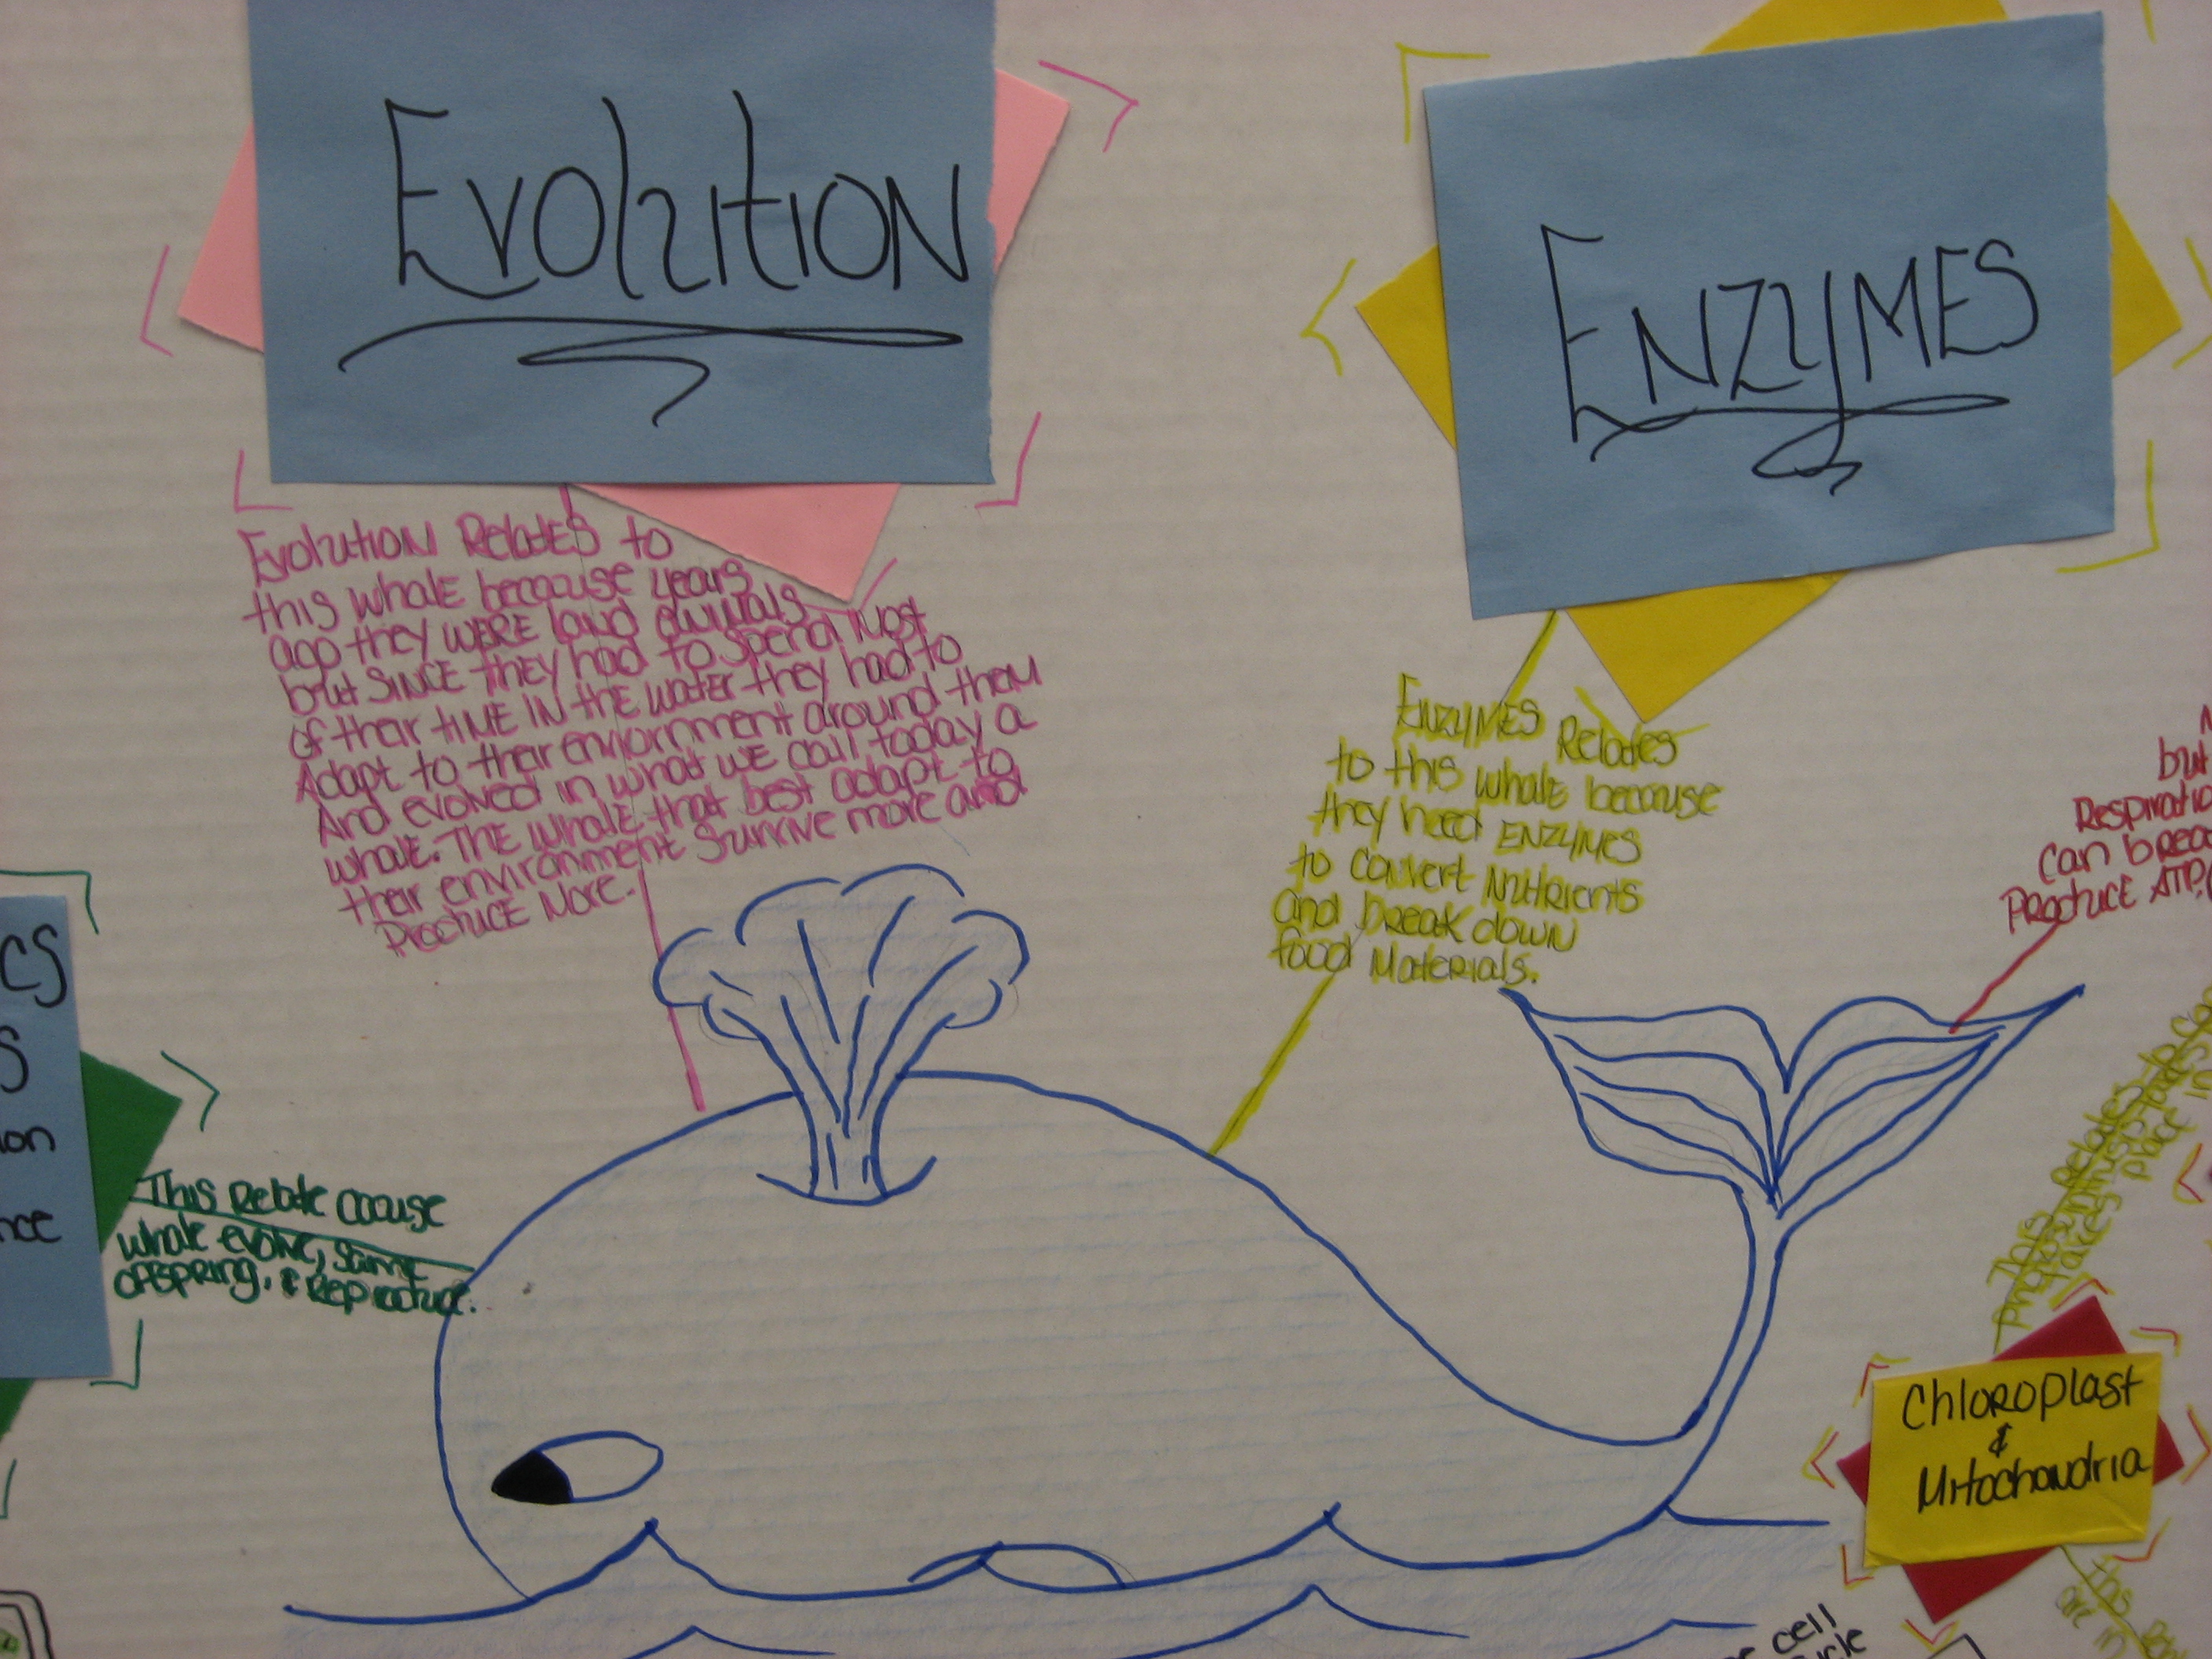 Evolution
Enzymes
Evolution Relates to
this whale becouse years
ago they were land animals
but since they had to spend most
of their time in the water they had to
Adapt to their enviornment around them
And evolved in what we call today a
whale. The whale that best adapt to
their environment survive more and
Produce More.
Enzymes Relates
to this whale because
they need enzymes
to convert Nutrients
and break down
food Materials.
but
Respiratio
can brea
Produce ATP.
cs
s
ion
nce
This Relate cause
whale evolve, same
offspring, & Reproduce.
This Relates to
place in
Chloroplast
&
Mitochondria
this
are in
cell